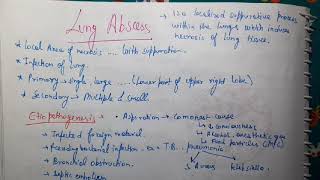 Lung Abscess
* Local Area of necrosis .... with suppuration.
* Infection of lung.
* Primary → single, large (Lower part of upper right lobe)
* Secondary → Multiple & small.
→ Its a localized suppurative process
within the lungs which induce
necrosis of lung tissue.
Etiopathogenesis → • Aspiration → Commonest cause
• Infected foreign material.
• Preceding bacterial infection. ex → T.B., pneumonia
• Bronchial obstruction.
• Septic embolism
↳ Unconsciousness
↳ Alcohol, anaesthetic
↳ Food particles
S. Aureus Klebsiella